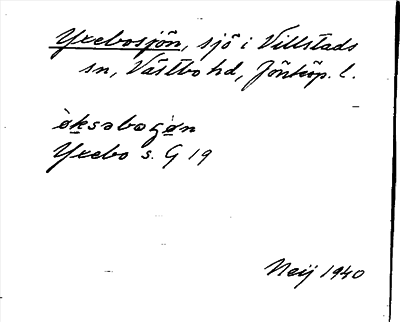 Yxebosjön, sjö i Villstads
sn, Västbo hd, Jönköp. l.
öksəbogøn
Yxebo s. G 19
Neij 1940